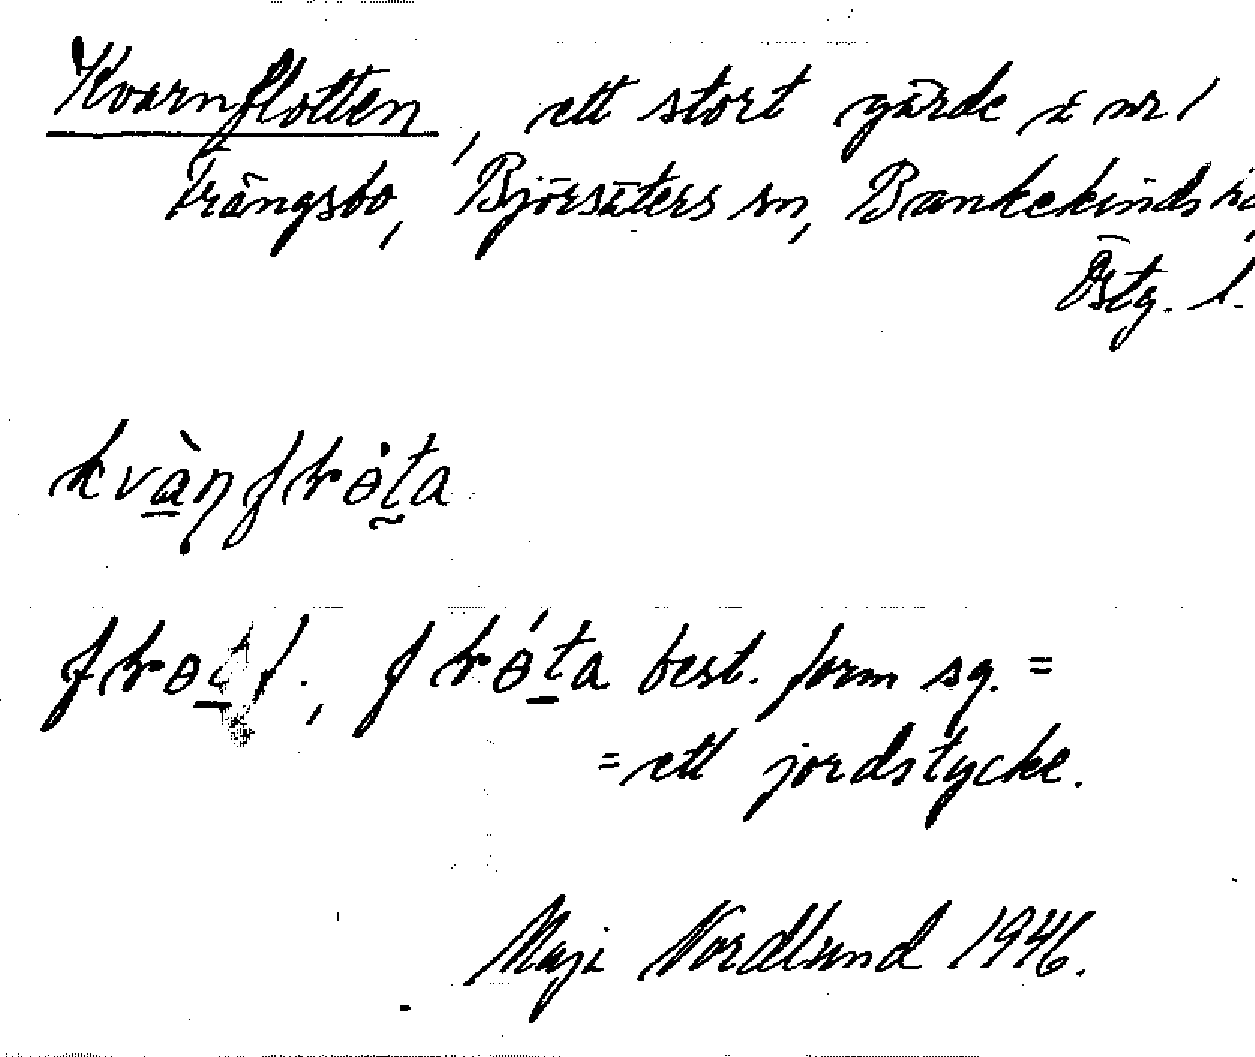 Kvarnflotten, ett stort gärde i nr 1
Trängsbo, Björsäters sn, Bankekinds
Östg. l.
ett jordstycke.
best. form sg. =
= ett jordstycke.
Maji Nordlund 1946.